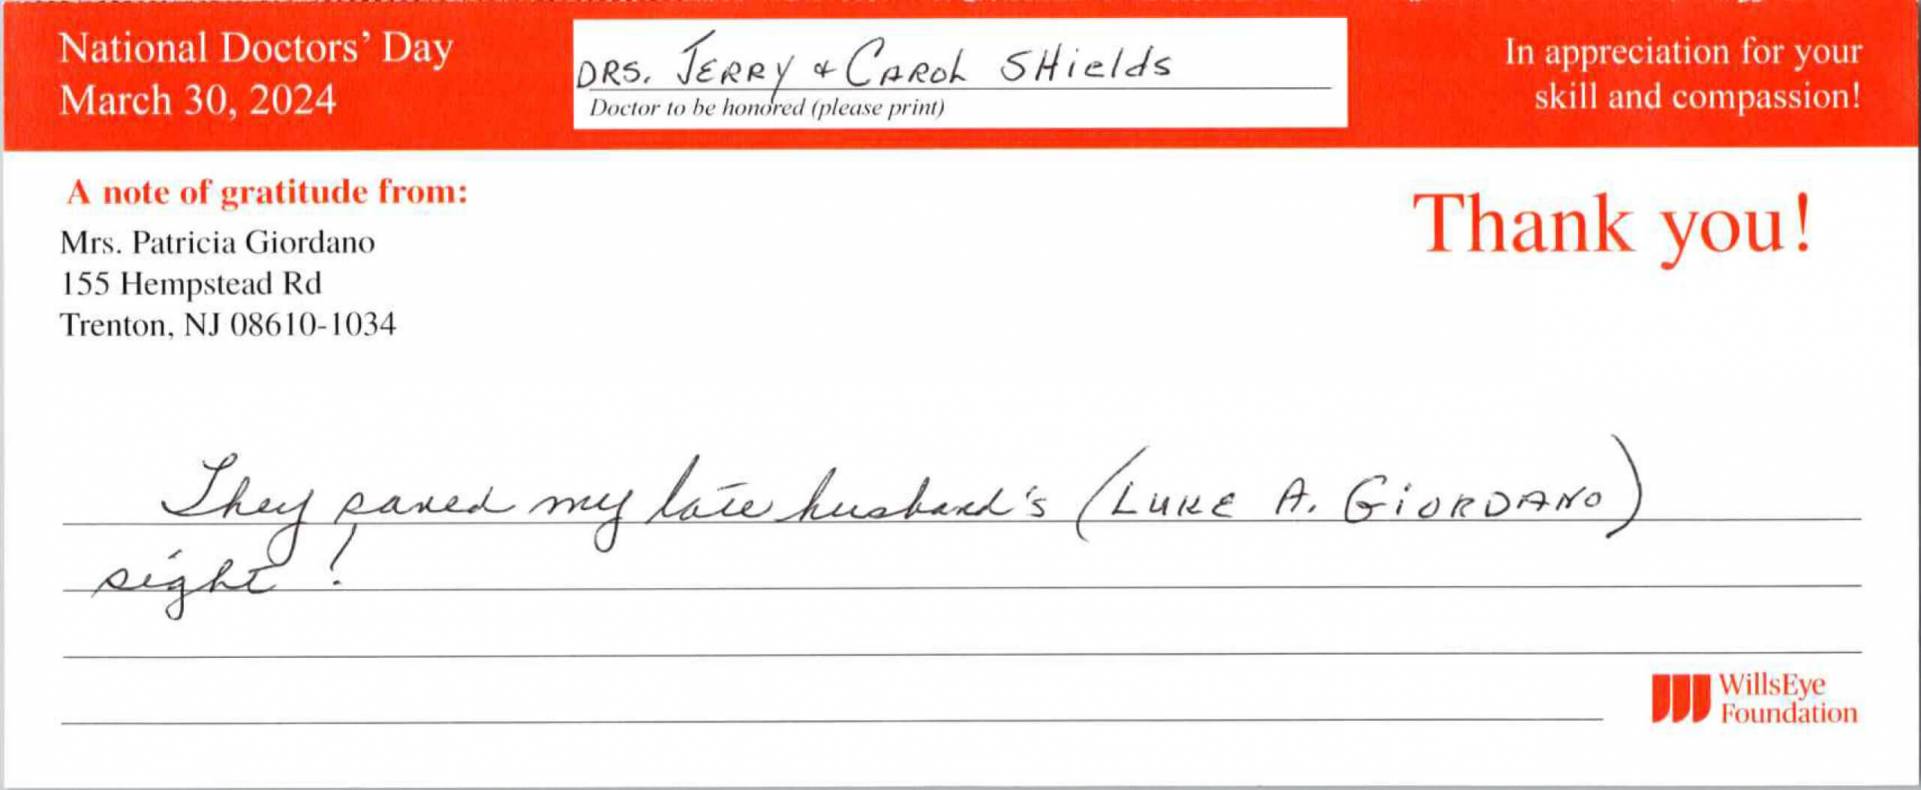 National Doctors' Day
March 30, 2024
DRS. JERRY & CAROL SHields
Doctor to be honored (please print)
In appreciation for your
skill and compassion!
A note of gratitude from:
Mrs. Patricia Giordano
155 Hempstead Rd
Trenton, NJ 08610-1034
Thank you!
They saved my late husband's (LUKE A. GiORDANO)
sight!
WillsEye
Foundation